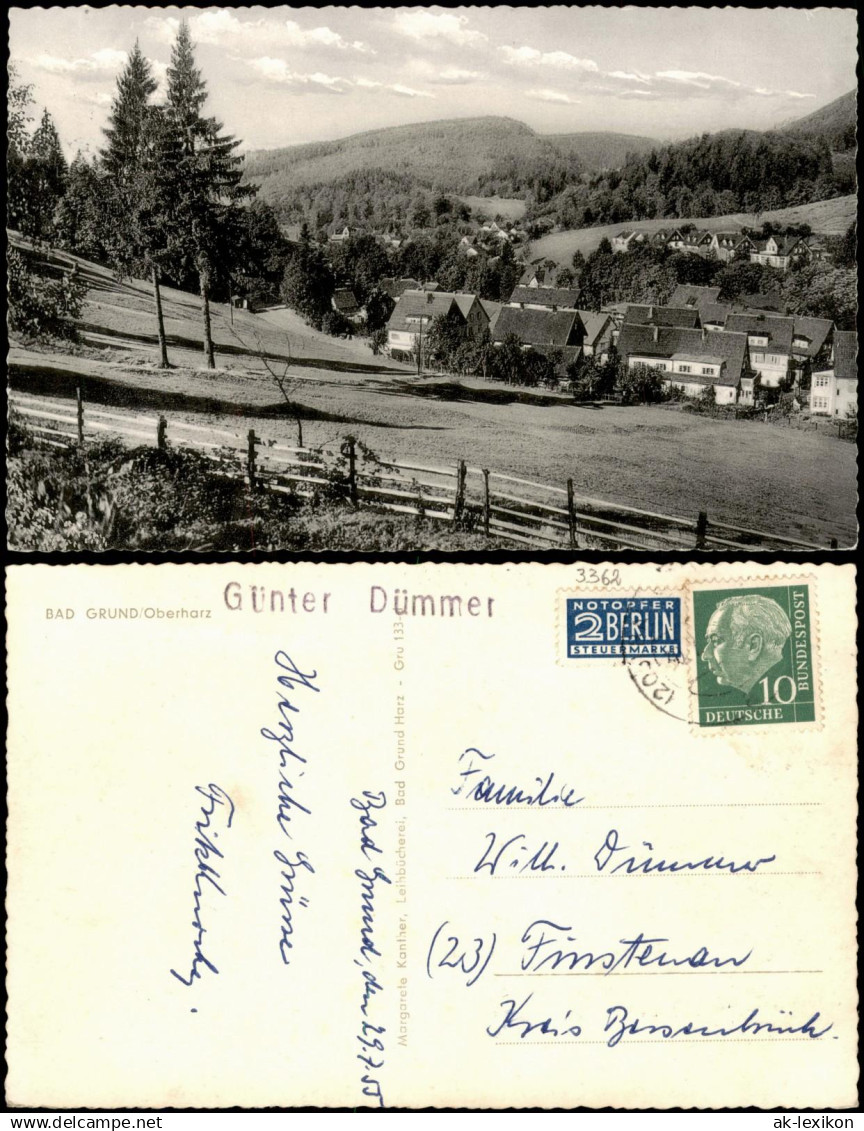 3362
BAD GRUND/Oberharz
Günter Dümmer
NOTOPFER
2 BERLIN
STEUERMARKE
10
DEUTSCHE
BUNDESPOST
(20
Herzliche Grüsse
Bad Grund, den 29.7.55
Margarete Kanther, Leihbücherei, Bad Grund Harz - Gru 133
Familie
Wilh. Dümmer
(23) Fürstenau
Kreis Bersenbrück.
ak-lexikon